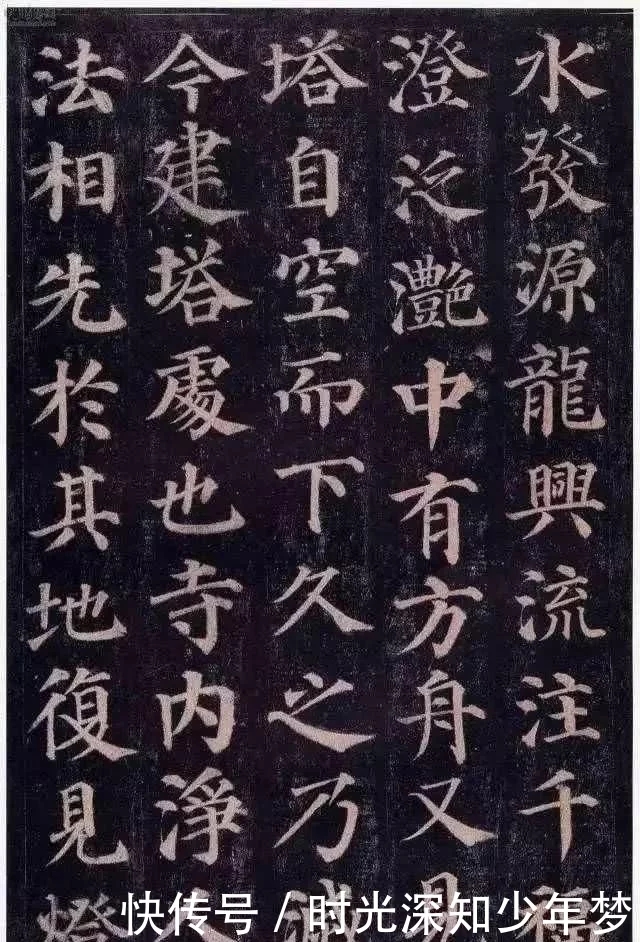 水發源龍興流注千福
澄泛灔中有方舟又見
塔自空而下久之乃滅
今建塔處也寺内淨人
法相先於其地復見燈
快传号/时光深知少年梦